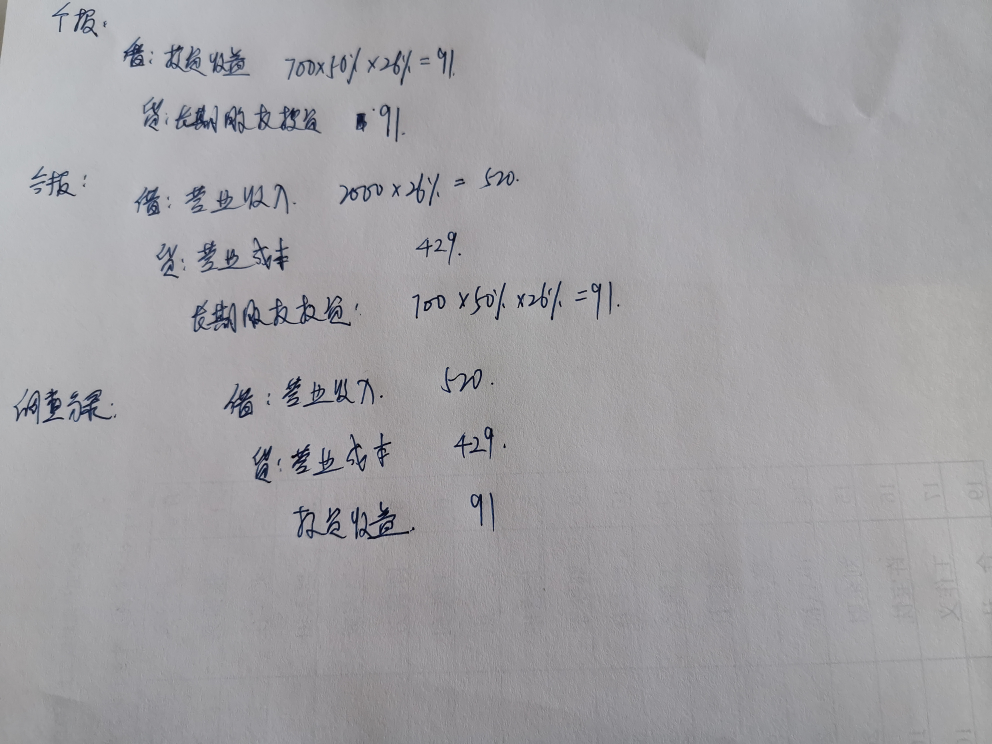 个报:
借: 投资收益 700×50%×26%=91.
贷: 长期股权投资 91.
合报:
借: 营业收入. 2000×26% = 520.
贷: 营业成本 429.
长期股权投资: 700×50%×26%=91.
调整分录:
借: 营业收入. 520.
贷: 营业成本 429.
投资收益. 91